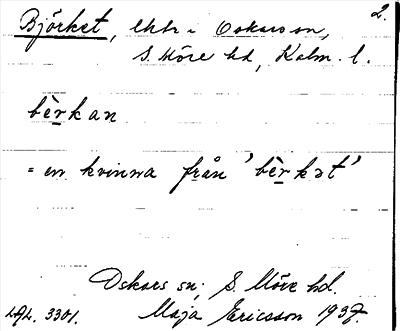 2.
Björket, lht i Oskars sn,
S. Möre hd, Kalm. l.
bèrkan
= en kvinna från 'bèrkət'
Oskars sn; S. Möre hd.
ULL. 3301. Maja Ericsson 1937.